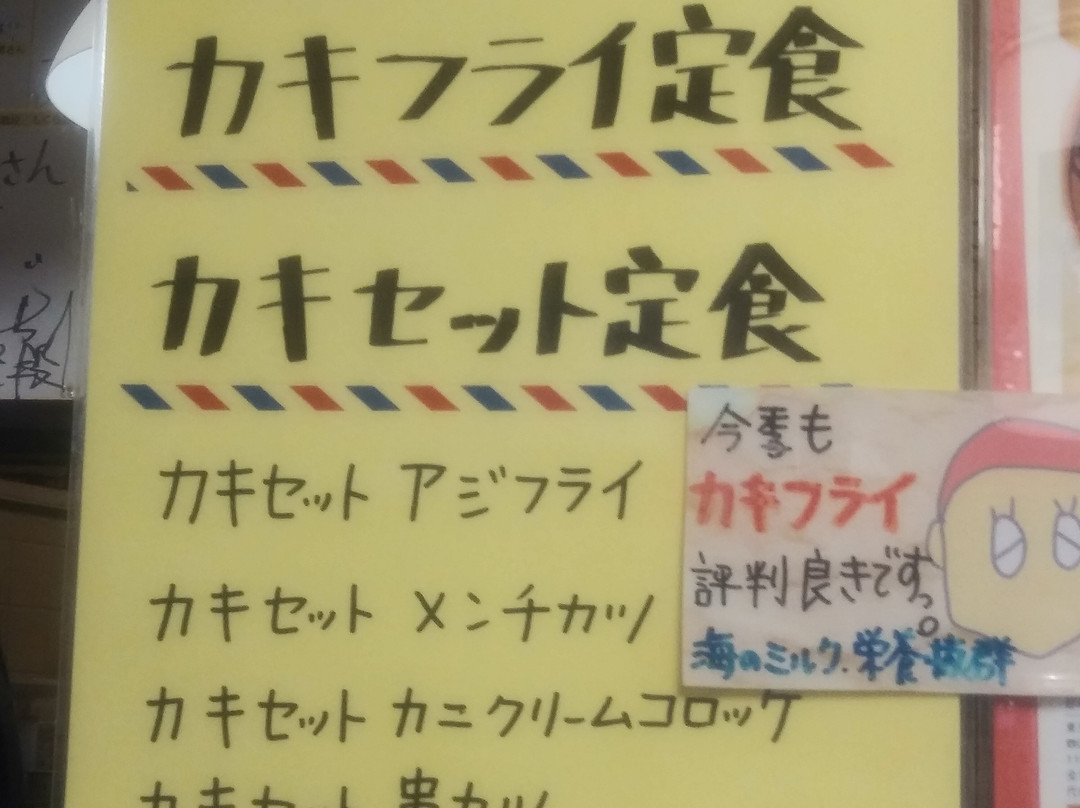 カキフライ定食
カキセット定食
カキセット アジフライ
カキセット メンチカツ
カキセット カニクリームコロッケ
カキセット 串カツ
今季も
カキフライ
評判良きですっ。
海のミルク.栄養抜群
さん